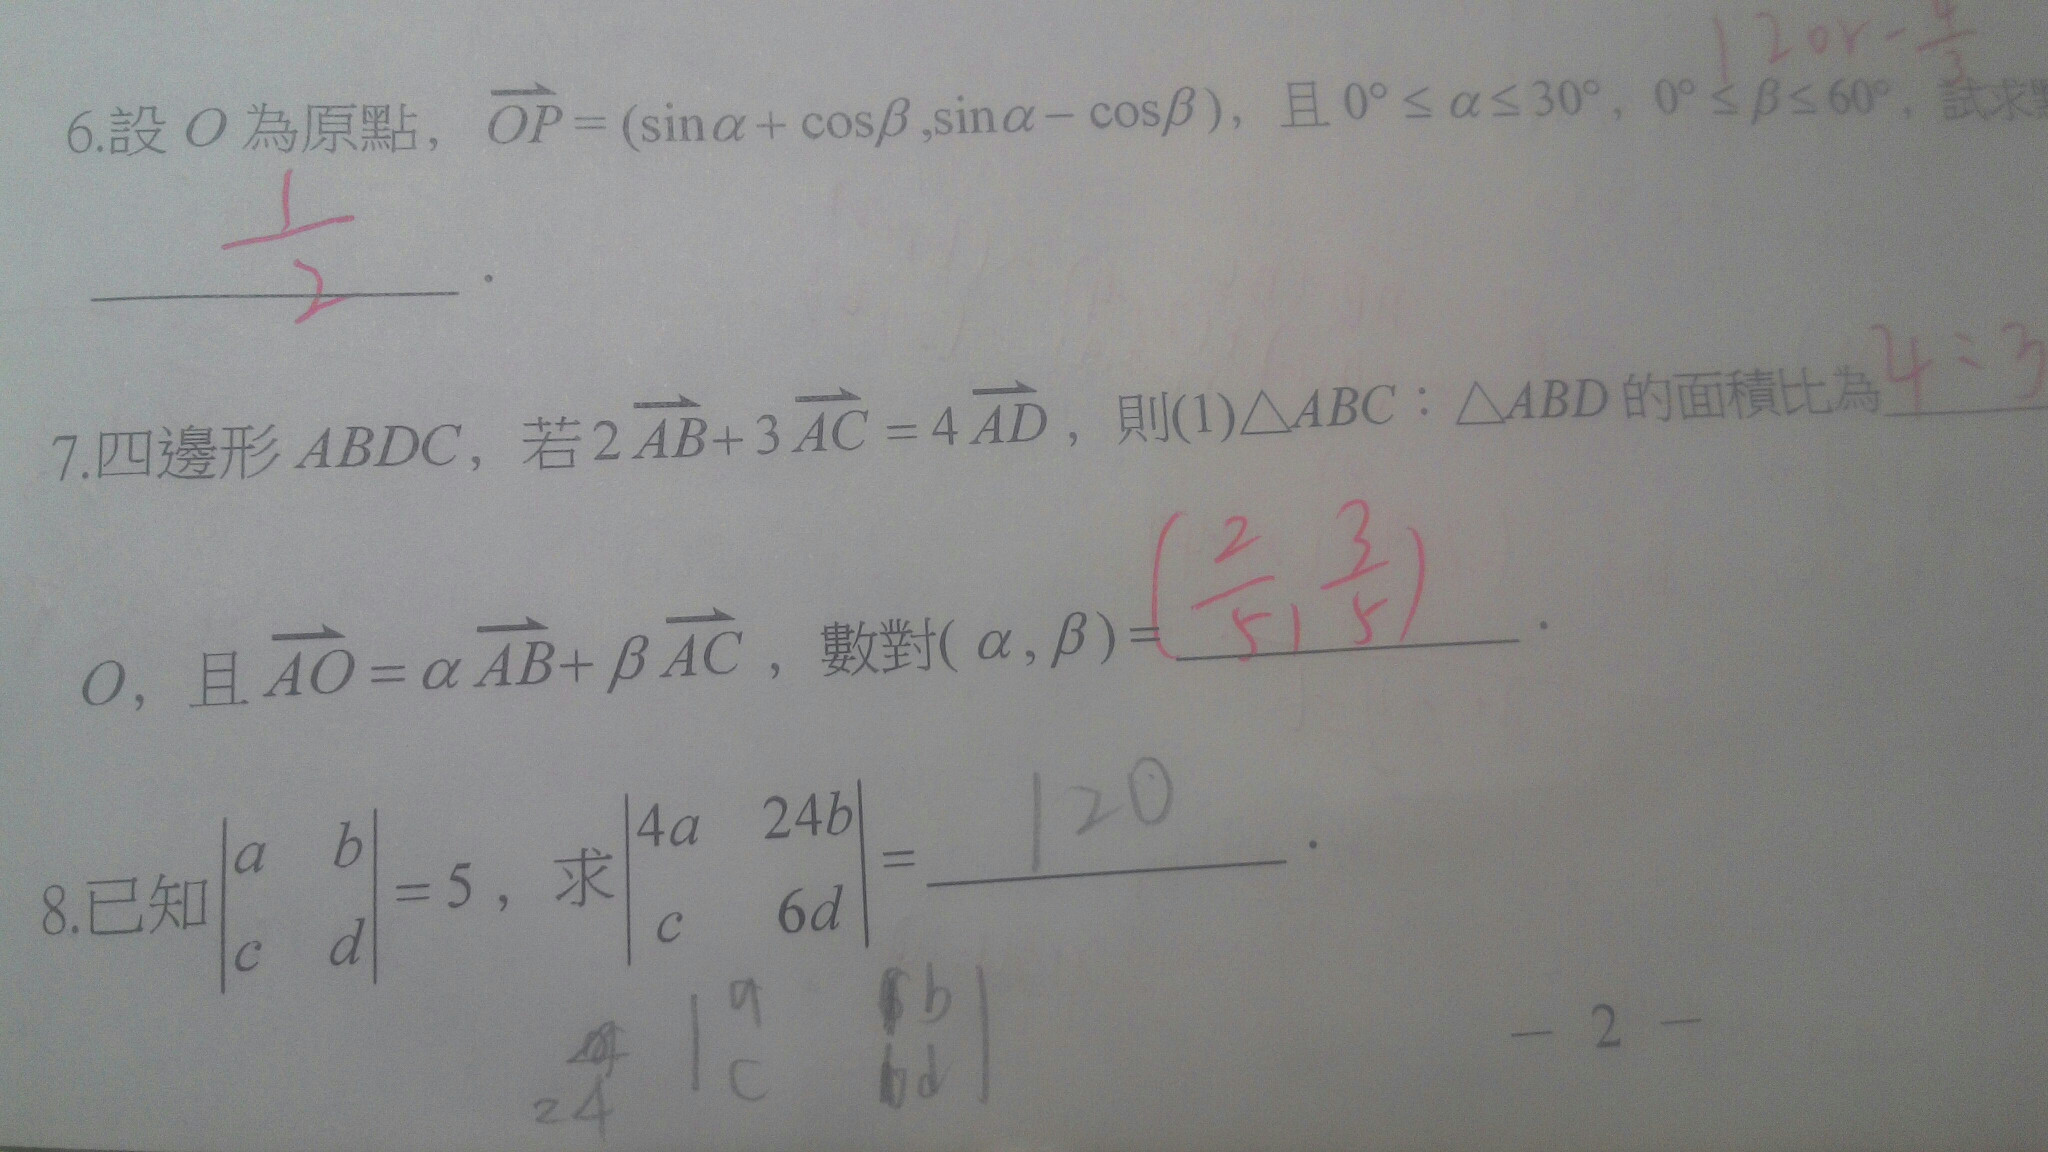 1 2 or - 4/3
6.設 O 為原點，OP = (sinα + cosβ ,sinα − cosβ )，且 0° ≤ α ≤ 30°，0° ≤ β ≤ 60°，試求點
1/2 .
7.四邊形 ABDC，若 2 AB + 3 AC = 4 AD，則(1)△ABC：△ABD 的面積比為 4 : 3
O，且 AO = α AB + β AC，數對( α , β ) = (2/5, 3/5) .
8.已知 |a b; c d| = 5，求 |4a 24b; c 6d| = 120 .
24 |a b; c d|
− 2 −